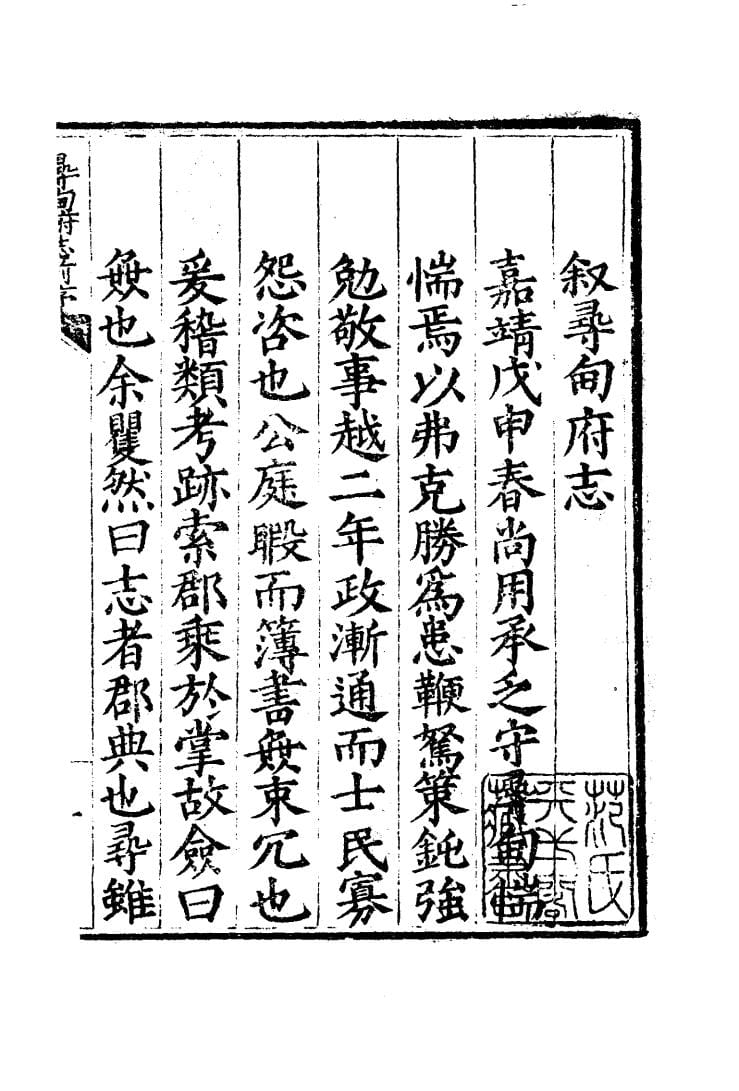 叙尋甸府志
嘉靖戊申春尚用承乏守尋甸惴
惴焉以弗克勝為患鞭駑策鈍強
勉敬事越二年政漸通而士民寡
怨咨也公庭暇而簿書無束冗也
爰稽類考跡索郡乘於掌故僉曰
無也余矍然曰志者郡典也尋雖
尋甸府志前序
范氏天一閣藏書